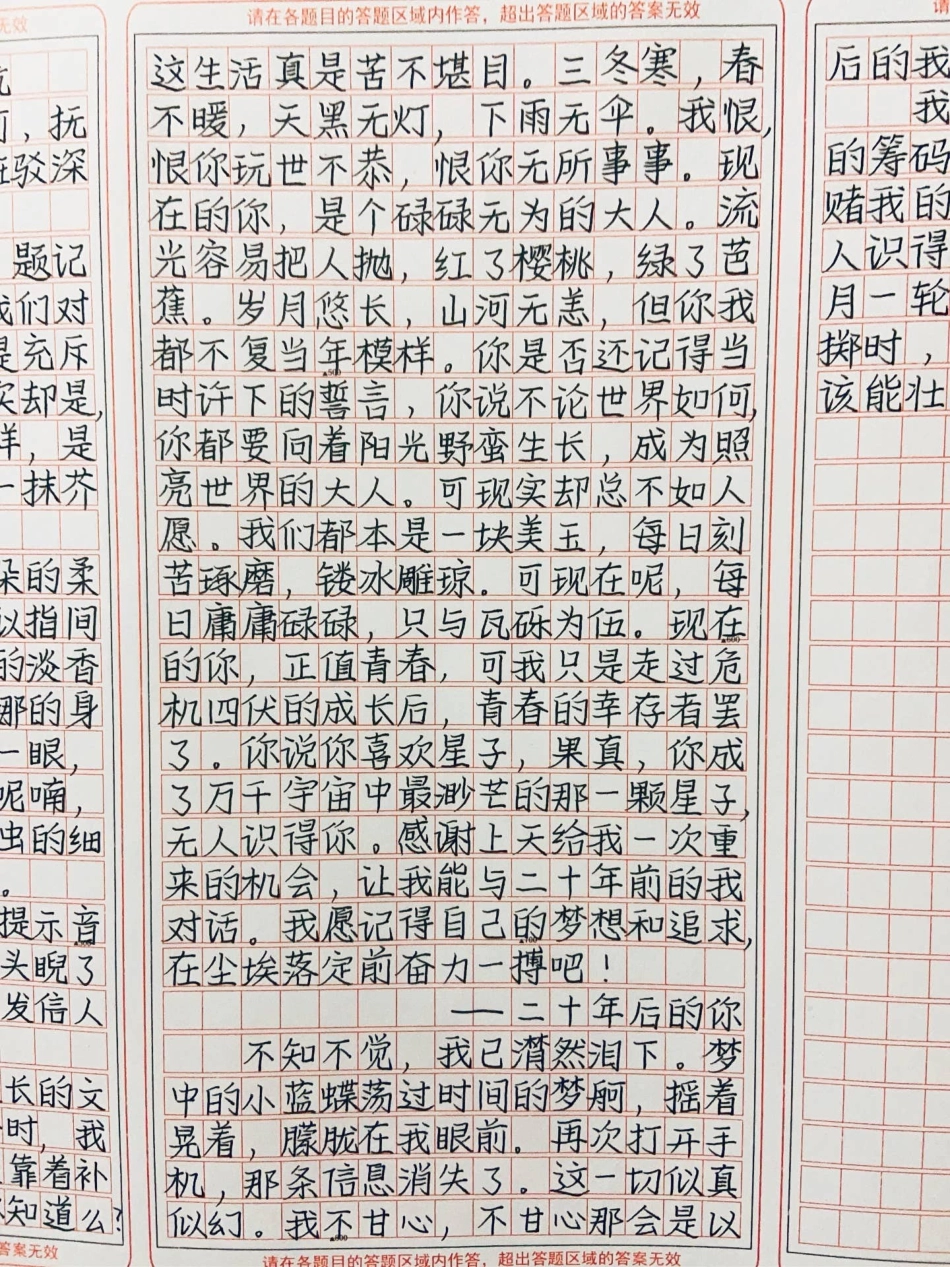 请在各题目的答题区域内作答，超出答题区域的答案无效
无效
，抚
驳深
题记
我们对
是充斥
实却是，
样，是
一抹芥
朵的柔
以指间
的淡香
那的身
一眼，
呢喃，
出的细
。
提示音
头睨了
发信人
长的文
时，我
靠着补
知道么？
答案无效
这生活真是苦不堪目。三冬寒，春
不暖，天黑无灯，下雨无伞。我恨，
恨你玩世不恭，恨你无所事事。现
在的你，是个碌碌无为的大人。流
光容易把人抛，红了樱桃，绿了芭
蕉。岁月悠长，山河无恙，但你我
都不复当年模样。你是否还记得当
▲500
时许下的誓言，你说不论世界如何，
你都要向着阳光野蛮生长，成为照
亮世界的大人。可现实却总不如人
愿。我们都本是一块美玉，每日刻
苦琢磨，镂冰雕琼。可现在呢，每
日庸庸碌碌，只与瓦砾为伍。现在
▲600
的你，正值青春，可我只是走过危
机四伏的成长后，青春的幸存者罢
了。你说你喜欢星子，果真，你成
了万千宇宙中最渺芒的那一颗星子，
无人识得你。感谢上天给我一次重
来的机会，让我能与二十年前的我
对话。我愿记得自己的梦想和追求，
▲700
在尘埃落定前奋力一搏吧！
——二十年后的你
不知不觉，我已潸然泪下。梦
中的小蓝蝶荡过时间的梦舸，摇着
晃着，朦胧在我眼前。再次打开手
机，那条信息消失了。这一切似真
似幻。我不甘心，不甘心那会是以
▲800
请在各题目的答题区域内作答，超出答题区域的答案无效
请
后的我
我
的筹码
赌我的
人识得
月一轮
掷时，
该能壮